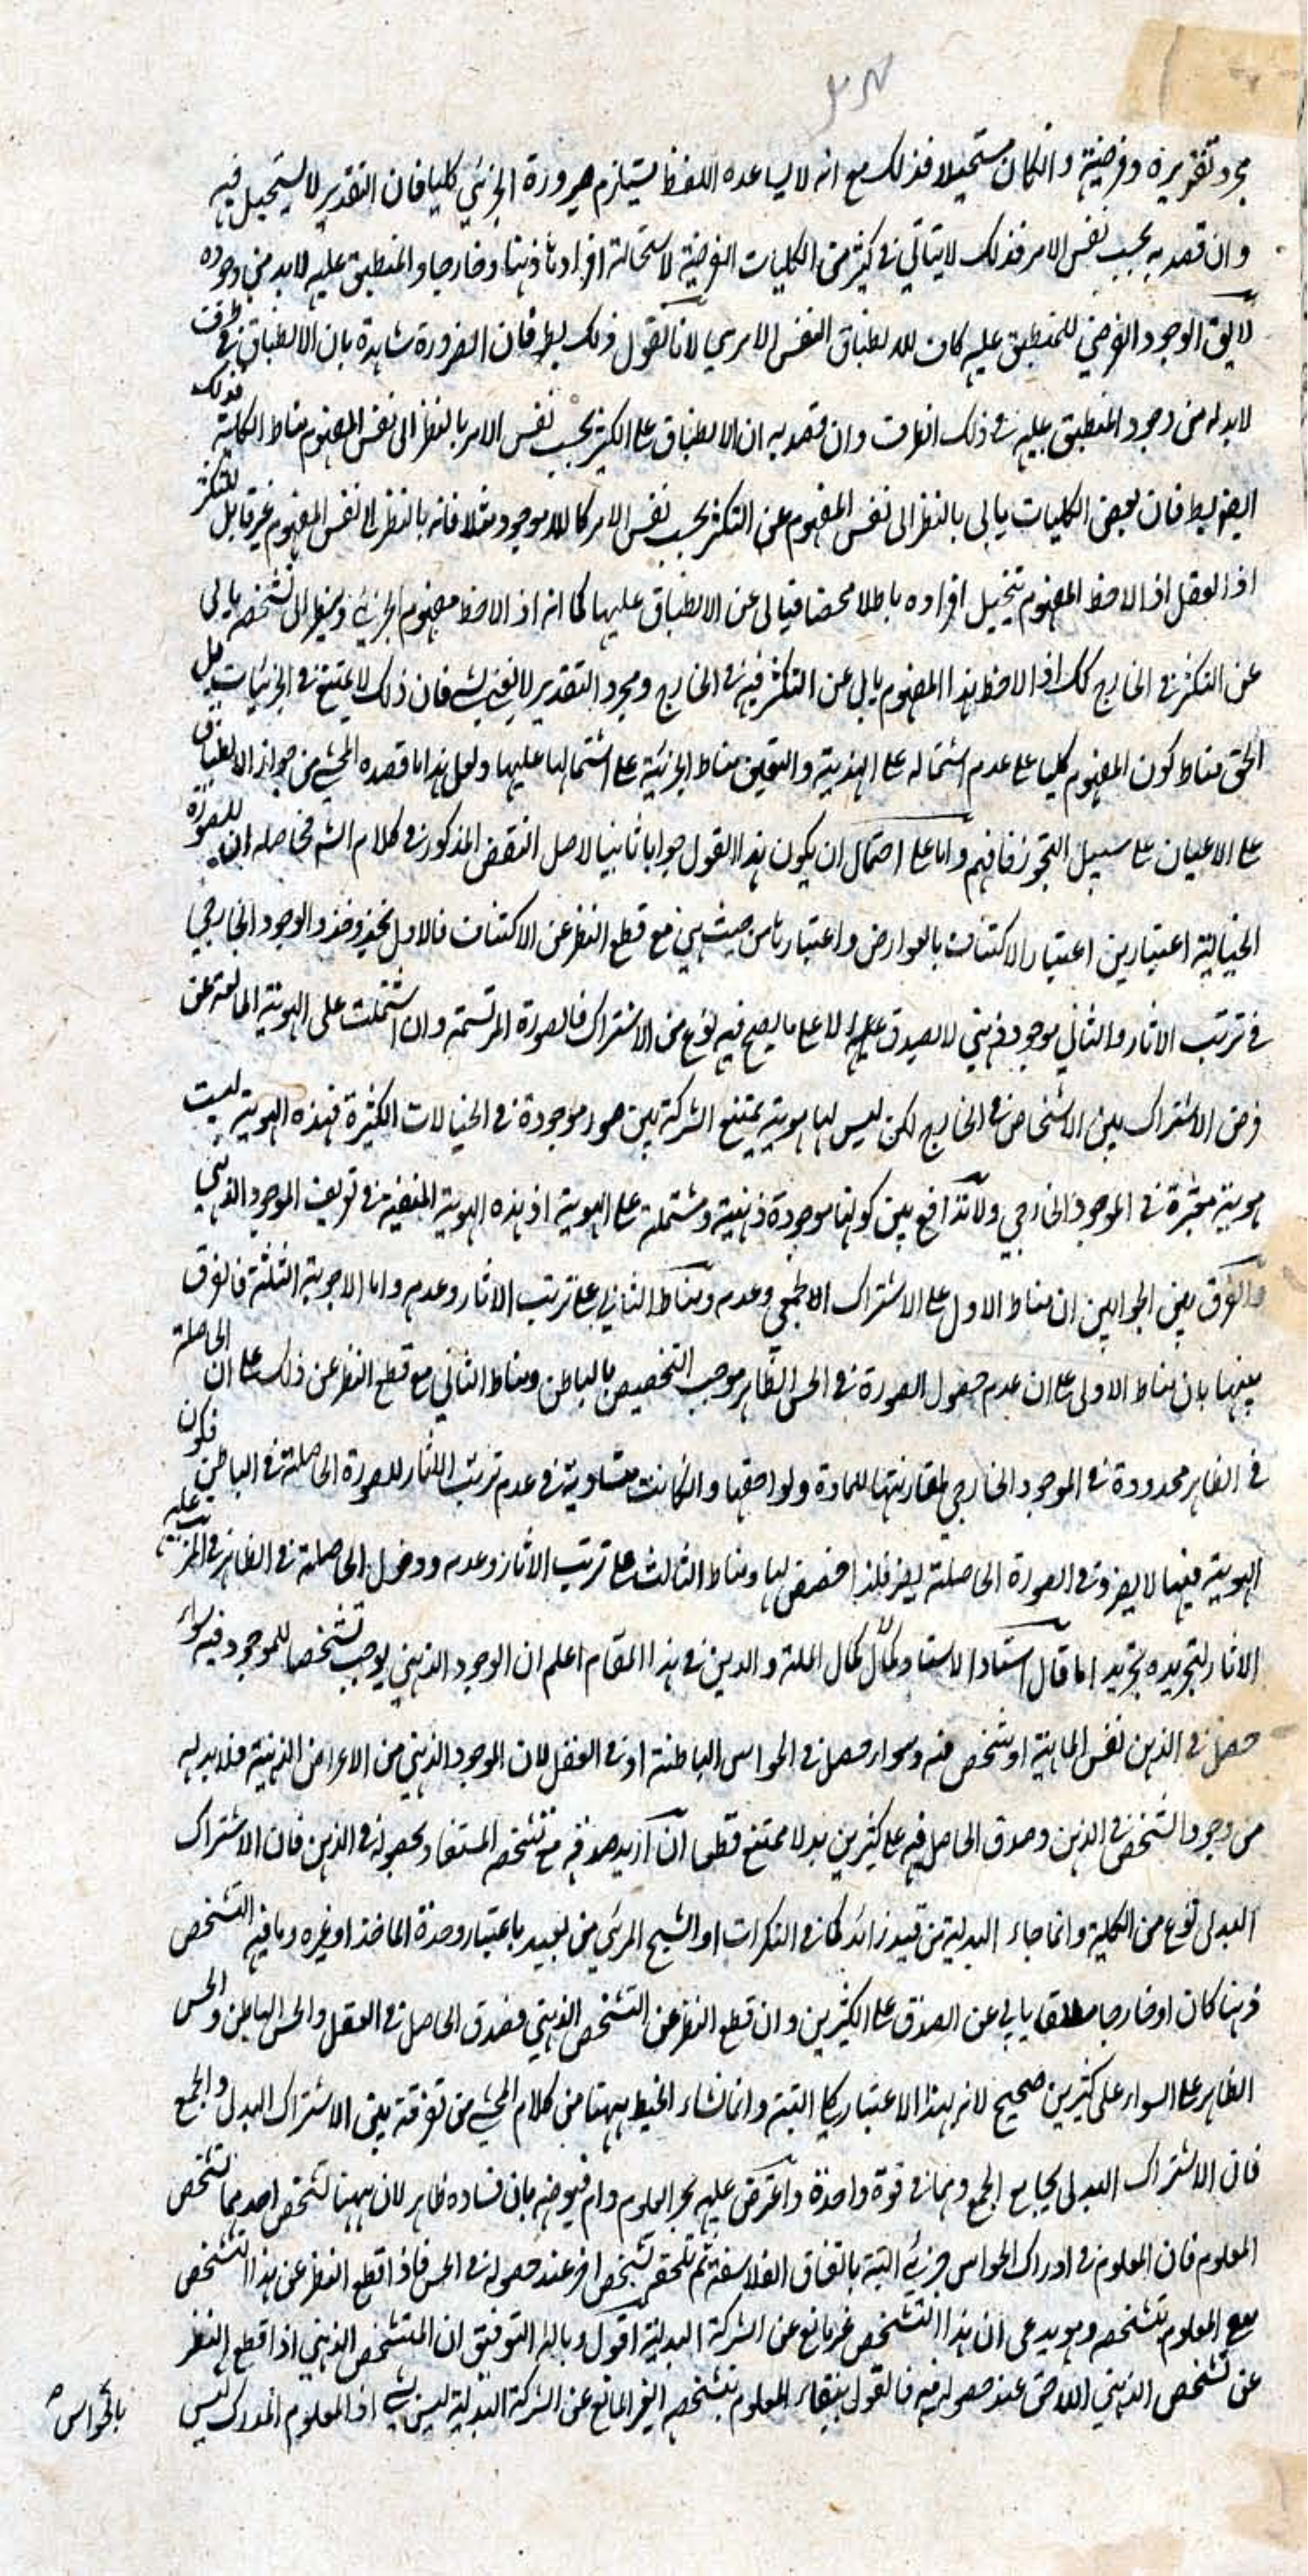 مجرد تقديره وفرضيته وانكان مستحيلا فذلك مع انه لا يساعده اللفظ يستلزم صيرورة الجزئي كليا فان التقدير لا يستحيل فيه
وان قصد به بحسب نفس الامر فذلك لا يتاتى في كثير من الكليات الفرضية لاستحالة افرادها ذهنا وخارجا والمنطبق عليه لابد من وجوده
لايق الوجود الفرضي للمنطبق عليه كاف للانطباق النفس الامري لانا نقول ذلك بط فان الضرورة شاهدة بان الانطباق في ظرف
لابد له من وجود المنطبق عليه في ذلك الظرف وان قصد به ان الانطباق على الكثير بحسب نفس الامر بالنظر الى نفس المفهوم مناط الكلية فذلك
ايضا بط فان بعض الكليات يابى بالنظر الى نفس المفهوم عن التكثر بحسب نفس الامر كاللاموجود مثلا فانه بالنظر الى نفس المفهوم غير قابل للتكثر
اذ العقل اذا لاحظ المفهوم يتخيل افراده باطلا محضا فيابى عن الانطباق عليها كما انه اذا لاحظ مفهوم الجزئي وينظر الى تشخصه يابى
عن التكثر في الخارج كك اذا لاحظ هذا المفهوم يابى عن التكثر فيه في الخارج ومجرد التقدير لا يفيد شي فان ذلك لا يمتنع في الجزئيات بل
الحق مناط كون المفهوم كليا على عدم اشتماله على الهذية والتعين مناط الجزئية على اشتمالها عليها ولعل هذا ما قصده المحشي من جواز الانطباق
على الاعيان على سبيل التجوز فافهم واما على احتمال ان يكون هذا القول جوابا ثانيا لاصل النقض المذكور في كلام الشه فحاصله ان للصورة
الخيالية اعتبارين اعتبار الاكتناف بالعوارض واعتبارها من حيث هي مع قطع النظر عن الاكتناف فالاول يحذو حذو الوجود الخارجي
في ترتب الاثار والثاني موجود ذهني لا يصدق عليه الا على ما يصح فيه نوع من الاشتراك فالصورة المرتسمة وان اشتملت على الهوية المانعة عن
فرض الاشتراك بين الاشخاص في الخارج لكن ليس لها هوية يمتنع الشركة بين صور موجودة في الخيالات الكثيرة فهذه الهوية ليست
هوية معتبرة في الموجود الخارجي ولا تدافع بين كونها موجودة ذهنية ومشتملة على الهوية اذ هذه الهوية المنفية في تعريف الموجود الذهني
والفرق بين الجوابين ان مناط الاول على الاشتراك الاجتماعي وعدمه ومناط الثاني على ترتب الاثار وعدمه واما الاجوبة الثلثة فالفرق
بينها بان مناط الاولى على ان عدم حصول الصورة في الحس الظاهر موجب التخصيص بالباطن ومناط الثاني مع قطع النظر عن ذلك على ان الحاصلة
في الظاهر محدودة في الموجود الخارجي لمقارنتها للمادة ولواحقها وانكانت متساوية في عدم ترتب الاثار للصورة الحاصلة في الباطن فكون
الهوية فيها لا يضر وفي الصورة الحاصلة يضر فلذا خصص لها ومناط الثالث على ترتب الاثار وعدمه ودخول الحاصلة في الظاهر في المترتب عليه
الاثار لتجريده بتجريد اما قال استاذ الاستاذ كمال الملة والدين في هذا المقام اعلم ان الوجود الذهني يوجب تشخصا للموجود فيه سواء
حصل في الذهن نفس الماهية او شخص منه وسواء حصل في الحواس الباطنة او في العقل لان الوجود الذهني من الاعراض الذهنية فلابد له
من وجود الشخص في الذهن وصدق الحاصل فيه على كثيرين بدلا ممتنع قطعا ان اريد صدقه مع تشخصه المستفاد بحصوله في الذهن فان الاشتراك
البدلي نوع من الكلية وانما جاء البدلية من قيد زائد كما في النكرات او الشبح المرئي من بعيد باعتبار وحدة الماخذ او غيره وما فيه التشخص
ذهنا كان او خارجا مطلقا يابى عن الصدق على الكثيرين وان قطع النظر عن التشخص الذهني فصدق الحاصل في العقل والحس الباطن والحس
الظاهر على السواء على كثيرين صحيح لانه بهذا الاعتبار كلي البتة وانما نشاء الخبط ههنا من كلام المحشي من تفرقته بين الاشتراك البدل والجمع
فان الاشتراك البدلي يجامع الجمع وهما في قوة واحدة واعترض عليه بحر العلوم دام فيوضه بان فساده ظاهر لان ههنا تشخص احدهما تشخص
المعلوم فان المعلوم في ادراك الحواس جزئي البتة باتفاق الفلاسفة ثم يلحقه تشخص اخر عند حصوله في الحس فاذا قطع النظر عن هذا التشخص
مع المعلوم بتشخصه وهو يدعى ان هذا التشخص غير مانع عن الشركة البدلية اقول وبالله التوفيق ان المتشخص الذهني اذا قطع النظر
عن تشخص الذهني اللاحق عند حصوله فيه فالقول ببقاء المعلوم بتشخصه الغير المانع عن الشركة البدلية ليس شي اذ المعلوم المدرك ليس
بالحواس